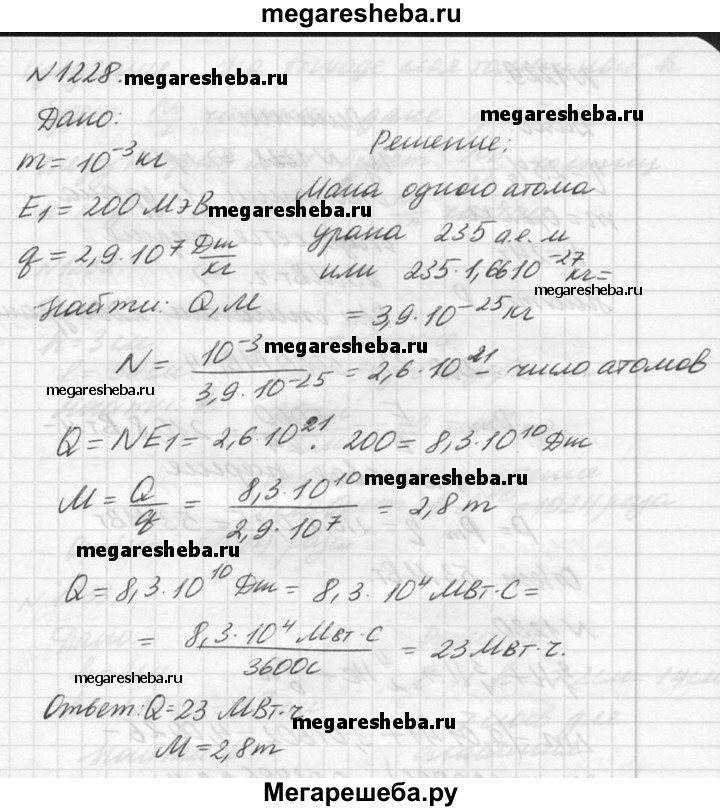 megaresheba.ru
N1228. megaresheba.ru
Дано:
m = 10⁻³ кг
E₁ = 200 МэВ megaresheba.ru
q = 2,9 · 10⁷ Дж/кг
Найти: Q, М
megaresheba.ru
Решение:
Масса одного атома
урана 235 а.е.м
или 235 · 1,66 10⁻²⁷ кг =
= 3,9 · 10⁻²⁵ кг
megaresheba.ru
N = 10⁻³ / 3,9 · 10⁻²⁵ = 2,6 · 10²¹ - число атомов
megaresheba.ru
Q = NE₁ = 2,6 · 10²¹ · 200 = 8,3 · 10¹⁰ Дж
M = Q/q = 8,3 · 10¹⁰ / 2,9 · 10⁷ = 2,8 т
megaresheba.ru
megaresheba.ru
Q = 8,3 · 10¹⁰ Дж = 8,3 · 10⁴ МВт · С =
= 8,3 · 10⁴ Мвт · с / 3600с = 23 Мвт · ч.
megaresheba.ru
Ответ: Q = 23 МВт · ч
megaresheba.ru
М = 2,8 т
Мегарешеба.ру